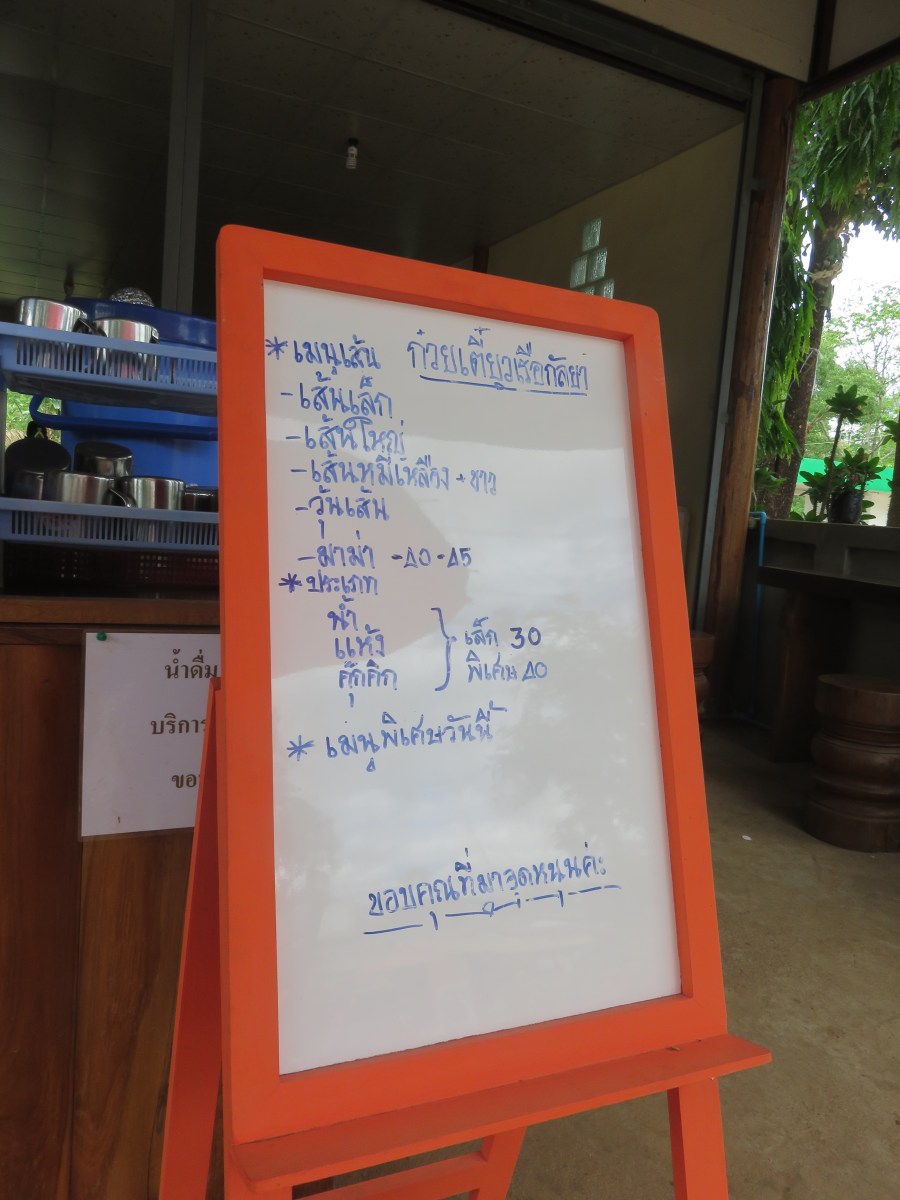 ก๋วยเตี๋ยวเรือกัลยา
*เมนูเส้น
-เส้นเล็ก
-เส้นใหญ่
-เส้นหมี่เหลือง + ขาว
-วุ้นเส้น
-มาม่า -40 -45
*ประเภท
น้ำ
แห้ง } เล็ก 30
คุ๊กคิก พิเศษ 40
* เมนูพิเศษวันนี้
ขอบคุณที่มาอุดหนุนค่ะ
น้ำดื่ม
บริการ